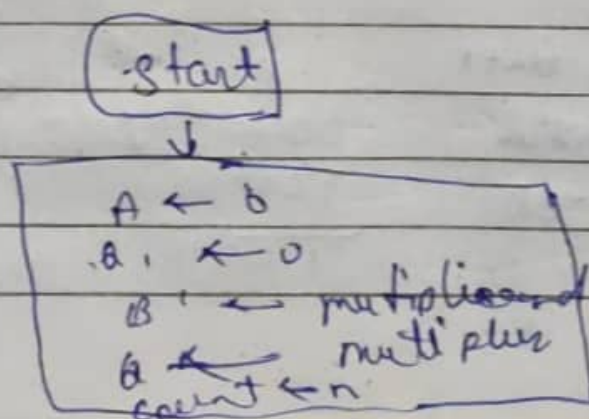 start
A ← 0
Q₁ ← 0
B ← multiplicand
Q ← multi plier
count ← n